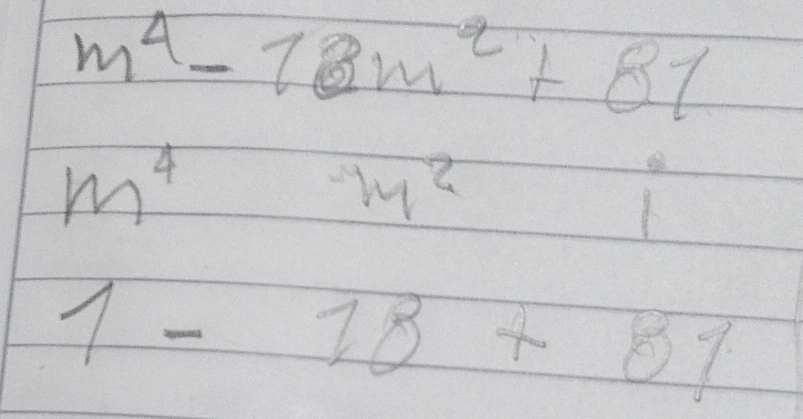 m⁴ - 18m² + 81
m⁴ m² i
1 - 18 + 81